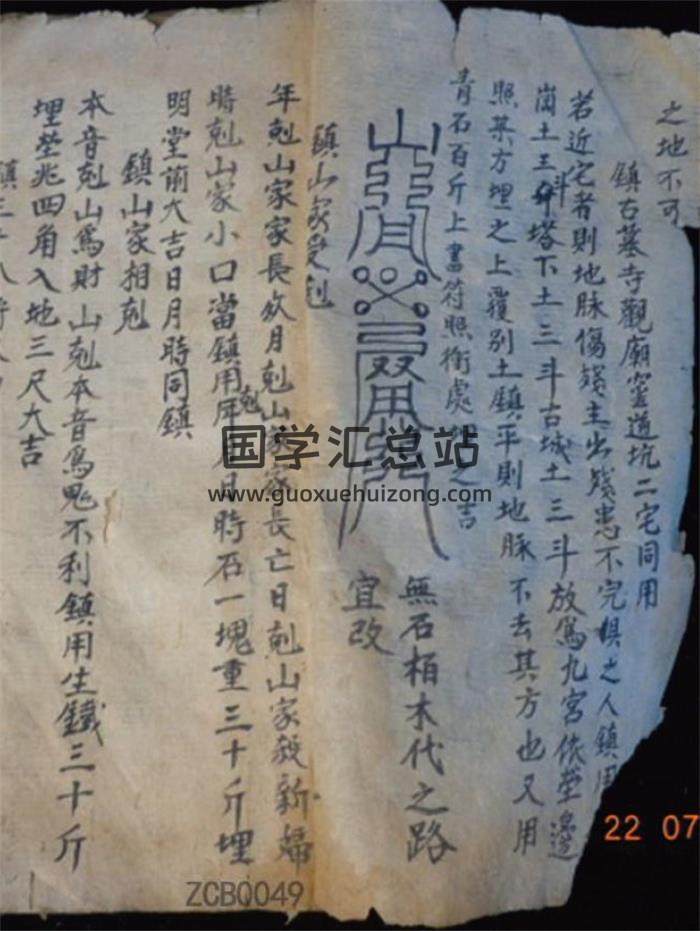 之地不可
鎮古墓寺觀廟窑道坑二宅同用
若近宅者則地脉傷殘主出殘患不完俱之人鎮用
崗土三斗塔下土三斗古城土三斗放為九宮依塋邊
照某方埋之上覆別土鎮平則地脉不去其方也又用
青石百斤上書符照衝處之吉
無石栢木代之路
宜改
鎮山家受尅
年尅山家家長欠月尅山家家長亡日尅山家殺新婦
時尅山家小口當鎮用月時石一塊重三十斤埋
明堂前大吉日月時同鎮
鎮山家相尅
本音尅山為財山尅本音為鬼不利鎮用生鐵三十斤
埋塋兆四角入地三尺大吉
国学汇总站
www.guoxuehuizong.com
22 07
ZCB0049